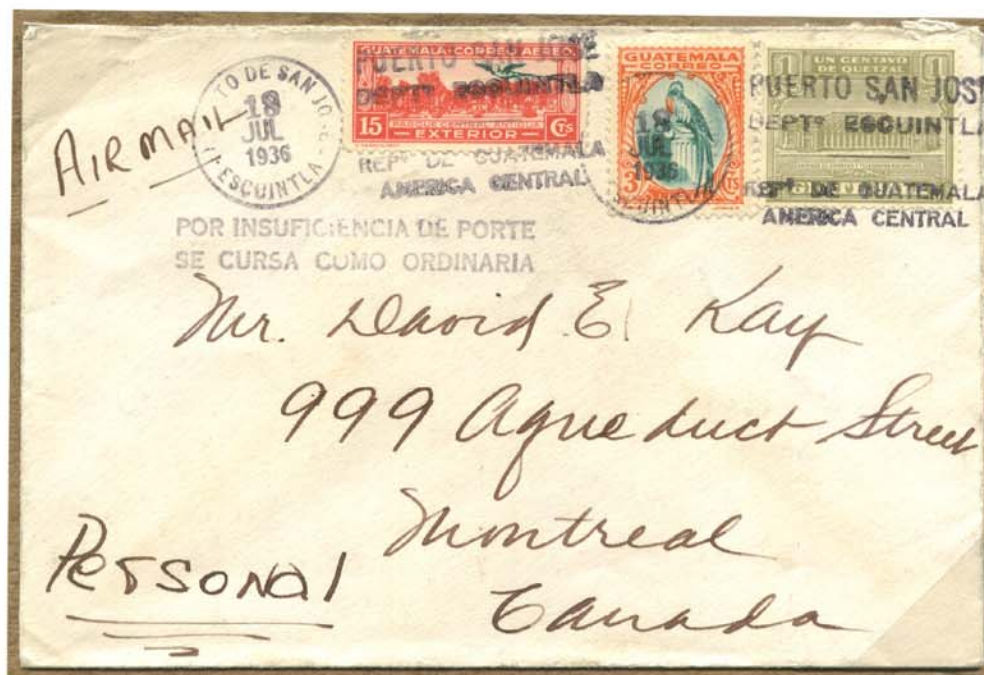 AIR MAIL
TO DE SAN JO
18
JUL
1936
ESCUINTLA
GUATEMALA-CORREO AEREO
15 PARQUE CENTRAL ANTIGUA Cts
EXTERIOR
PUERTO SAN JOSE
DEPTo ESCUINTLA
REPa DE GUATEMALA
AMERICA CENTRAL
GUATEMALA
CORREO
3 CTS
18
JUL
1936
1 UN CENTAVO 1
DE QUETZAL
PUERTO SAN JOSE
DEPTo ESCUINTLA
REPa DE GUATEMALA
AMERICA CENTRAL
POR INSUFICIENCIA DE PORTE
SE CURSA COMO ORDINARIA
Mr. David E Kay
999 Aqueduct Street
Montreal
Canada
Personal